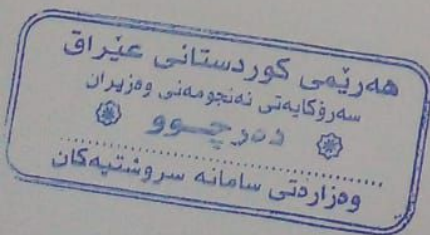 هەرێمی کوردستانی عێراق
سەرۆکایەتی ئەنجومەنی وەزیران
دەرچــوو
وەزارەتی سامانە سروشتیەکان